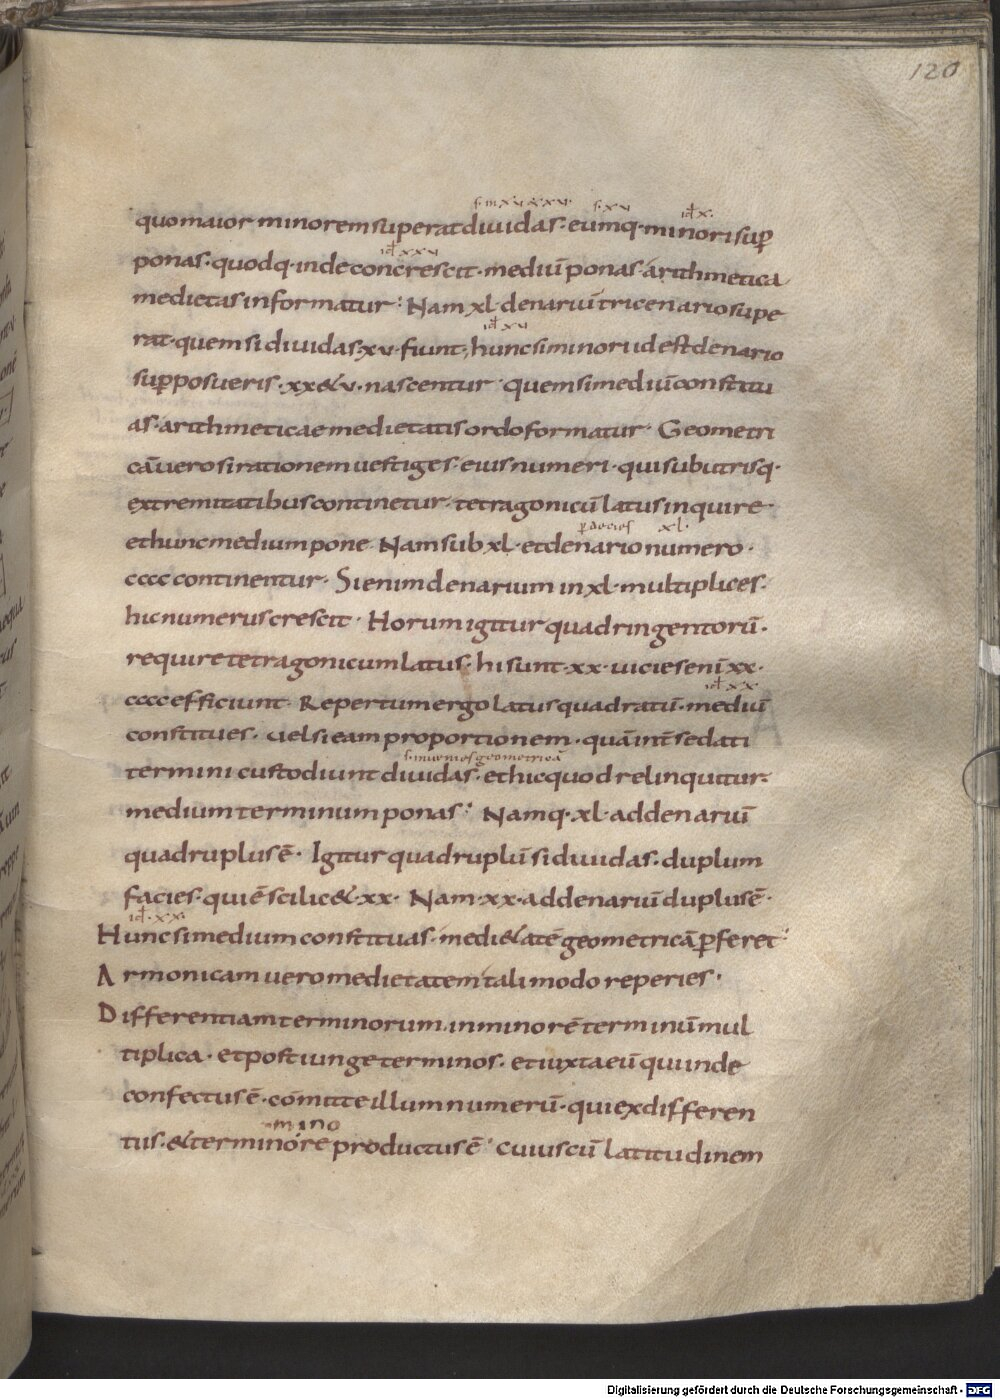 120
s. in xv & xv· s. xv id x·
quo maior minorem superat diuidas· eumq· minori sup
id xxv
ponas· quodq· inde concrescit· mediū ponas· arithmetica
medietas informatur: Nam xl denariū tricenario supe
id xv
rat· quem si diuidas· xv· fiunt, hunc si minori id est denario
supposueris· xx & v· nascentur· quem si mediū constitu
as· arithmeticae medietatis ordo formatur· Geometri
cā uero si rationem uestiges· eius numeri· qui sub utrisq·
extremitatibus continetur· tetragonicū latus inquire·
p decies xl·
et hunc medium pone· Nam sub xl· et denario numero·
cccc continentur· Si enim denarium in xl· multiplices·
hic numerus crescit· Horum igitur quadringentorū·
require tetragonicum latus· hi sunt· xx· uicies enī xx·
id xx
cccc efficiunt· Repertum ergo latus quadratū· mediū
constitues· uel si eam proportionem· quā int se dati
s. inuenies geometricā
termini custodiunt diuidas· et hic quod relinquitur·
medium terminum ponas: Namq· xl· ad denariū
quadruplus ē· Igitur quadruplū si diuidas· duplum
facies· qui ē scilic& · xx· Nam· xx· ad denariū duplus ē·
id· xx·
Hunc si medium constituas· medi&atē geometricā pferet:
Armonicam uero medietatem tali modo reperies·
Differentiam terminorum· in minorē terminū mul
tiplica· et post iunge terminos· et iuxta eū qui inde
confectus ē· comitte illum numerū· qui ex differen
mino
tiis· & termino re productus ē· Cuius cū latitudinem
Digitalisierung gefördert durch die Deutsche Forschungsgemeinschaft - DFG